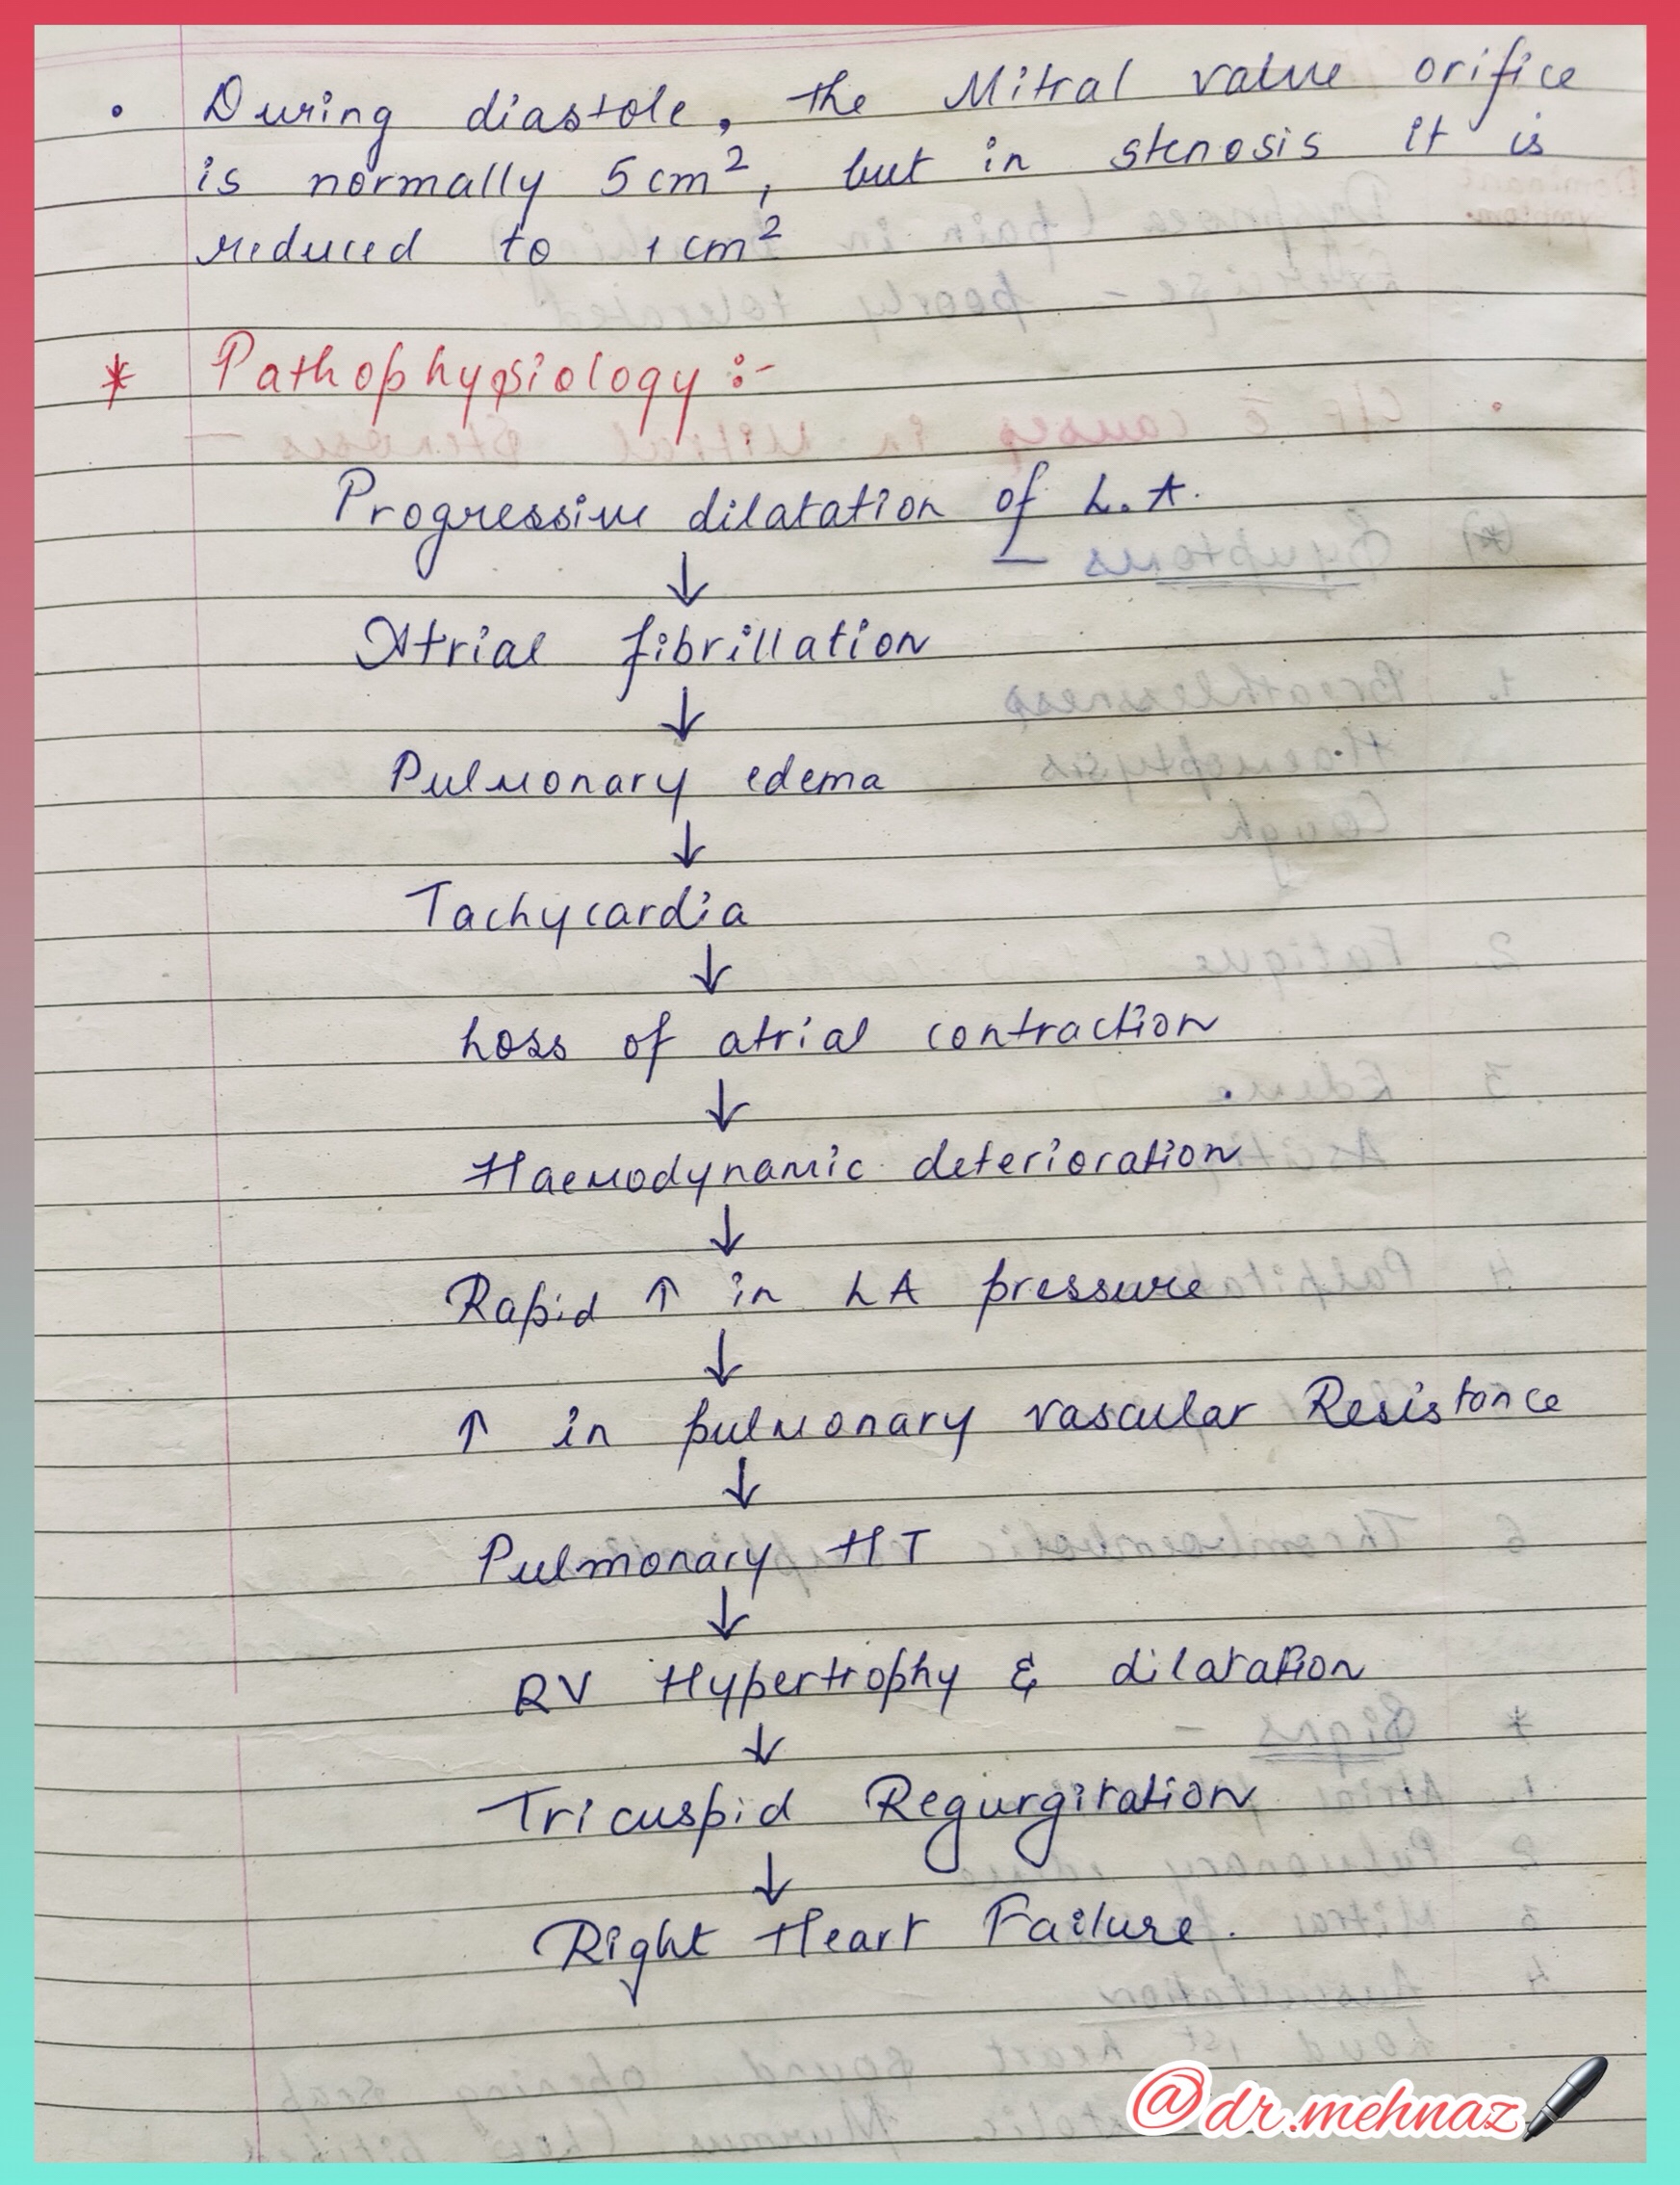 • During diastole, the Mitral valve orifice
is normally 5 cm², but in stenosis it is
reduced to 1 cm²
* Pathophysiology :-
Progressive dilatation of L.A.
↓
Atrial fibrillation
↓
Pulmonary edema
↓
Tachycardia
↓
Loss of atrial contraction
↓
Haemodynamic deterioration
↓
Rapid ↑ in LA pressure
↓
↑ in pulmonary vascular Resistance
↓
Pulmonary HT
↓
RV Hypertrophy & dilatation
↓
Tricuspid Regurgitation
↓
Right Heart Failure.
@dr.mehnaz